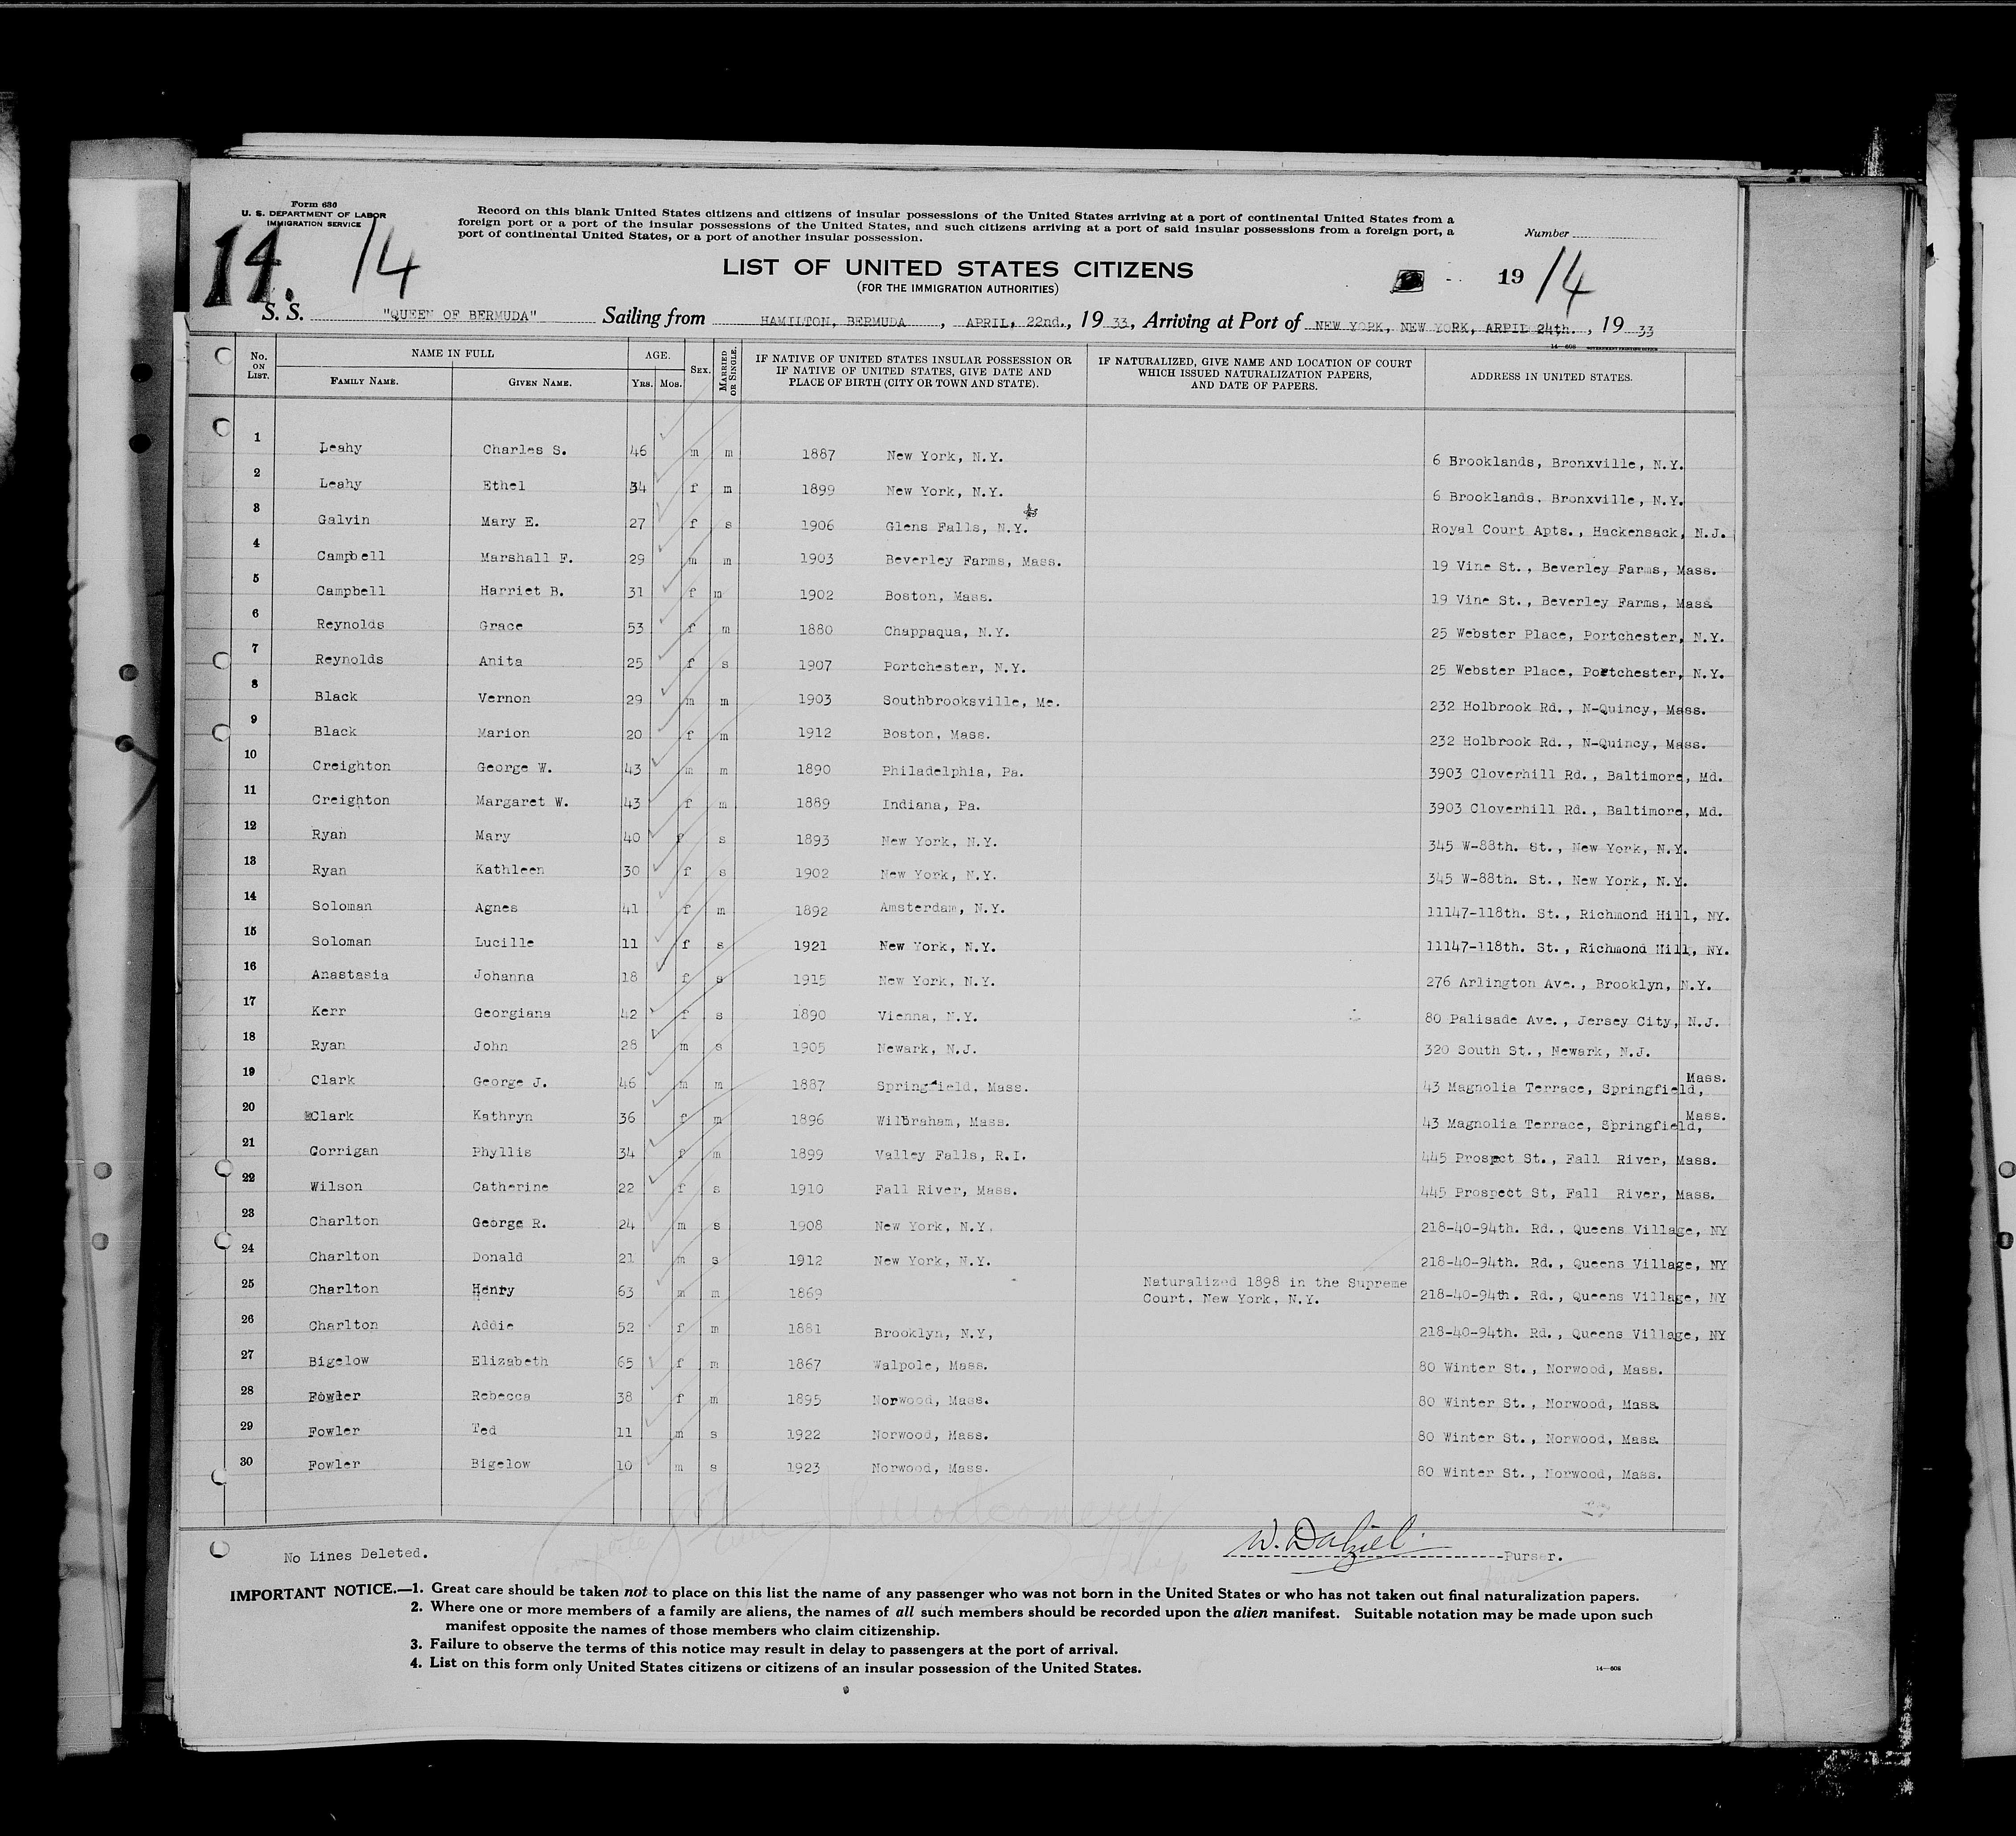 Form 630
U. S. DEPARTMENT OF LABOR
IMMIGRATION SERVICE
14. 14
Record on this blank United States citizens and citizens of insular possessions of the United States arriving at a port of continental United States from a
foreign port or a port of the insular possessions of the United States, and such citizens arriving at a port of said insular possessions from a foreign port, a
port of continental United States, or a port of another insular possession.
Number
LIST OF UNITED STATES CITIZENS
(FOR THE IMMIGRATION AUTHORITIES)
19 14
S. S. "QUEEN OF BERMUDA" Sailing from HAMILTON, BERMUDA , APRIL, 22nd., 19 33, Arriving at Port of NEW YORK, NEW YORK, ARPIL 24th. , 19 33
14—608 GOVERNMENT PRINTING OFFICE
No. ON LIST. NAME IN FULL FAMILY NAME. GIVEN NAME. AGE. YRS. MOS. SEX. MARRIED OR SINGLE. IF NATIVE OF UNITED STATES INSULAR POSSESSION OR IF NATIVE OF UNITED STATES, GIVE DATE AND PLACE OF BIRTH (CITY OR TOWN AND STATE). IF NATURALIZED, GIVE NAME AND LOCATION OF COURT WHICH ISSUED NATURALIZATION PAPERS, AND DATE OF PAPERS. ADDRESS IN UNITED STATES.
1 Leahy Charles S. 46 m m 1887 New York, N.Y. 6 Brooklands, Bronxville, N.Y.
2 Leahy Ethel 34 f m 1899 New York, N.Y. 6 Brooklands. Bronxville, N.Y.
3 Galvin Mary E. 27 f s 1906 Glens Falls, N.Y. Royal Court Apts., Hackensack, N.J.
4 Campbell Marshall F. 29 m m 1903 Beverley Farms, Mass. 19 Vine St., Beverley Farms, Mass.
5 Campbell Harriet B. 31 f m 1902 Boston, Mass. 19 Vine St., Beverley Farms, Mass.
6 Reynolds Grace 53 f m 1880 Chappaqua, N.Y. 25 Webster Place, Portchester, N.Y.
7 Reynolds Anita 25 f s 1907 Portchester, N.Y. 25 Webster Place, Portchester, N.Y.
8 Black Vernon 29 m m 1903 Southbrooksville, Me. 232 Holbrook Rd., N-Quincy, Mass.
9 Black Marion 20 f m 1912 Boston, Mass. 232 Holbrook Rd., N-Quincy, Mass.
10 Creighton George W. 43 m m 1890 Philadelphia, Pa. 3903 Cloverhill Rd., Baltimore, Md.
11 Creighton Margaret W. 43 f m 1889 Indiana, Pa. 3903 Cloverhill Rd., Baltimore, Md.
12 Ryan Mary 40 f s 1893 New York, N.Y. 345 W-88th. St., New York, N.Y.
13 Ryan Kathleen 30 f s 1902 New York, N.Y. 345 W-88th. St., New York, N.Y.
14 Soloman Agnes 41 f m 1892 Amsterdam, N.Y. 11147-118th. St., Richmond Hill, NY.
15 Soloman Lucille 11 f s 1921 New York, N.Y. 11147-118th. St., Richmond Hill, NY.
16 Anastasia Johanna 18 f s 1915 New York, N.Y. 276 Arlington Ave., Brooklyn, N.Y.
17 Kerr Georgiana 42 f s 1890 Vienna, N.Y. 80 Palisade Ave., Jersey City, N.J.
18 Ryan John 28 m s 1905 Newark, N.J. 320 South St., Newark, N.J.
19 Clark George J. 46 m m 1887 Springfield, Mass. 43 Magnolia Terrace, Springfield, Mass.
20 Clark Kathryn 36 f m 1896 Wilbraham, Mass. 43 Magnolia Terrace, Springfield, Mass.
21 Corrigan Phyllis 34 f m 1899 Valley Falls, R.I. 445 Prospct St., Fall River, Mass.
22 Wilson Catherine 22 f s 1910 Fall River, Mass. 445 Prospect St, Fall River, Mass.
23 Charlton George R. 24 m s 1908 New York, N.Y. 218-40-94th. Rd., Queens Village, NY
24 Charlton Donald 21 m s 1912 New York, N.Y. 218-40-94th. Rd., Queens Village, NY
25 Charlton Henry 63 m m 1869 Naturalized 1898 in the Supreme Court, New York, N.Y. 218-40-94th. Rd., Queens Village, NY
26 Charlton Addie 52 f m 1881 Brooklyn, N.Y, 218-40-94th. Rd., Queens Village, NY
27 Bigelow Elizabeth 65 f m 1867 Walpole, Mass. 80 Winter St., Norwood, Mass.
28 Fowler Rebecca 38 f m 1895 Norwood, Mass. 80 Winter St., Norwood, Mass.
29 Fowler Ted 11 m s 1922 Norwood, Mass. 80 Winter St., Norwood, Mass.
30 Fowler Bigelow 10 m s 1923 Norwood, Mass. 80 Winter St., Norwood, Mass.
No Lines Deleted.
W. Dalziel Purser.
IMPORTANT NOTICE.—1. Great care should be taken not to place on this list the name of any passenger who was not born in the United States or who has not taken out final naturalization papers.
2. Where one or more members of a family are aliens, the names of all such members should be recorded upon the alien manifest. Suitable notation may be made upon such
manifest opposite the names of those members who claim citizenship.
3. Failure to observe the terms of this notice may result in delay to passengers at the port of arrival.
4. List on this form only United States citizens or citizens of an insular possession of the United States.
14—608